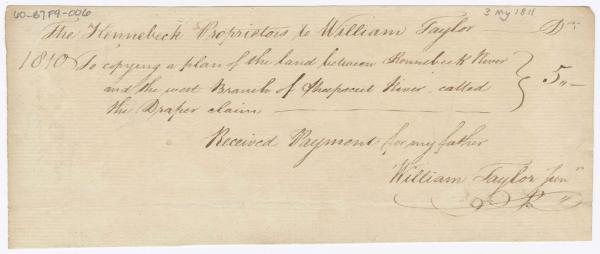 60-67F9-006
3 My 1811
The Kennebeck Proprietors to William Taylor — Dr
1810 To copying a plan of the land between Kennebeck River
and the west Branch of Sheepscut River, called } 5,,—
the Draper claim
Received Payment for my father
William Taylor Jun"